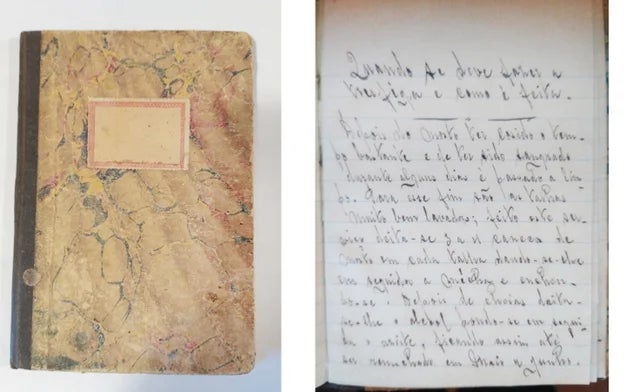 Quando se deve fazer a
trasfega e como é feita.
Depois do mosto ter cosido o tem-
po bastante e de ter sido sangrado
durante alguns dias é passado a lim-
po. Para esse fim são as talhas
muito bem lavadas; feito este ser-
viço deita-se 3 a 4 canecos de
mosto em cada talha dando-se-lhe
em seguida a mécha e enchem-
do-se. Depois de cheias deita-
se-lhe o alcool pondo-se em segui-
da o azeite, ficando assim até
ser em Maio e Junho.